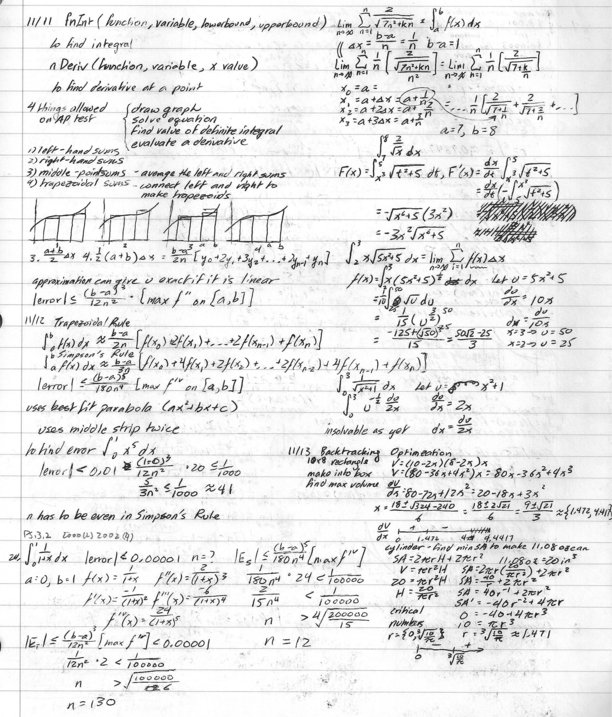 11/11 fnInt (function, variable, lowerbound, upperbound)
to find integral
nDeriv (function, variable, x value)
to find derivative at a point
4 things allowed on AP test { draw graph
solve equation
find value of definite integral
evaluate a derivative
1) left-hand sums
2) right-hand sums
3) middle-point sums - average the left and right sums
4) trapezoidal sums - connect left and right to
make trapezoids
3. (a+b)/2 Δx 4. ½(a+b)Δx = (b-a)/2n [y₀+2y₁+2y₂+...+2yₙ₋₁+yₙ]
approximation can give u exact if it is linear
|error| ≤ (b-a)³/12n² · [max f'' on [a,b]]
11/12 Trapezoidal Rule
∫ₐᵇ f(x)dx ≈ (b-a)/2n [f(x₀)+2f(x₁)+...+2f(xₙ₋₁)+f(xₙ)]
Simpson's Rule
∫ₐᵇ f(x)dx ≈ (b-a)/3n [f(x₀)+4f(x₁)+2f(x₂)+...+2f(xₙ₋₂)+4f(xₙ₋₁)+f(xₙ)]
|error| ≤ (b-a)⁵/180n⁴ [max fⁱᵛ on [a,b]]
uses best fit parabola (ax²+bx+c)
uses middle strip twice
to find error ∫₀¹ x⁵ dx
|error| < 0.01 (1-0)³/12n² · 20 ≤ 1/1000
5/3n² ≤ 1/1000 ≈ 41
n has to be even in Simpson's Rule
∫₀¹ 1/(1+x) dx |error| < 0.00001 n=?
a=0, b=1 f(x)=1/(1+x) f''(x)=2/(1+x)³
f'(x)=-1/(1+x)² f'''(x)=-6/(1+x)⁴
fⁱᵛ(x)=24/(1+x)⁵
|E_T| ≤ (b-a)³/12n² [max f''] < 0.00001
1/12n² · 2 < 1/100000
n > √(100000/6)
n = 130
|E_S| ≤ (b-a)⁵/180n⁴ [max fⁱᵛ]
1/180n⁴ · 24 < 1/100000
2/15n⁴ < 1/100000
n > ⁴√(200000/15)
n = 12
Lim n→∞ Σ n=1 n 2/√(7n²+kn) = ∫ₐᵇ f(x)dx
Δx = (b-a)/n = 1/n b-a=1
Lim n→∞ Σ n=1 n 1/n [2/√((7n²+kn)/n²)] = Lim n→∞ Σ n=1 n 1/n [2/√(7+k/n)]
x₀ = a =
x₁ = a+Δx = a+1/n
x₂ = a+2Δx = a+2/n
x₃ = a+3Δx = a+3/n
= ... 1/n [2/√(7+1/n) + 2/√(7+2/n) + ...]
a=7, b=8
∫₇⁸ 2/√x dx
F(x)=∫ₓ³⁵ √(t²+5) dt, F'(x)= d/dx ∫ₓ³⁵ √(t²+5)
= d/dx (-∫₅ˣ³ √(t²+5))
= -√(x⁶+5) (3x²)
= -3x²√(x⁶+5)
∫₂³ x√(5x²+5) dx = lim n→∞ Σ i=1 n f(x)Δx
f(x)=∫₂³ x(5x²+5)^½ dx Let u=5x²+5
= 1/10 ∫₂₅⁵⁰ √u du du/dx = 10x
= 1/15 (u^3/2)₂₅⁵⁰ dx = du/10x
x=3→u=50
x=2→u=25
∫₀³ 1/√(x²+1) dx Let u = x²+1
∫₀³ u^-½ du/2x du/dx = 2x
insolvable as yet dx = du/2x
11/13 Backtracking Optimization
10x8 rectangle V=(10-2x)(8-2x)x
make into box V=(80-36x+4x²)x=80x-36x²+4x³
find max volume dV/dx=80-72x+12x²=20-18x+3x²
x = (18±√(324-240))/6 = (18±2√21)/6 = (9±√21)/3 ≈ {1.472, 4.4417}
dV/dx + -
0 1.472 4 4.4417
cylinder - find min SA to make 11.08oz can
SA=2πrH+2πr² 11.08oz=20in³
V=πr²H SA=2πr(20/πr²)+2πr²
20=πr²H SA=40/r+2πr²
H=20/πr² SA=40r⁻¹+2πr²
SA'=-40r⁻²+4πr
critical 0=-40+4πr³
numbers 10=πr³
r={0, ³√(10/π)} r=³√(10/π)≈1.471
- +
0 ³√(10/π)